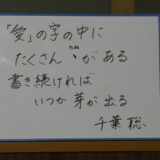 「愛」の字の中に
たくさん丶がある
書き続ければ
いつか芽が出る
千葉聡